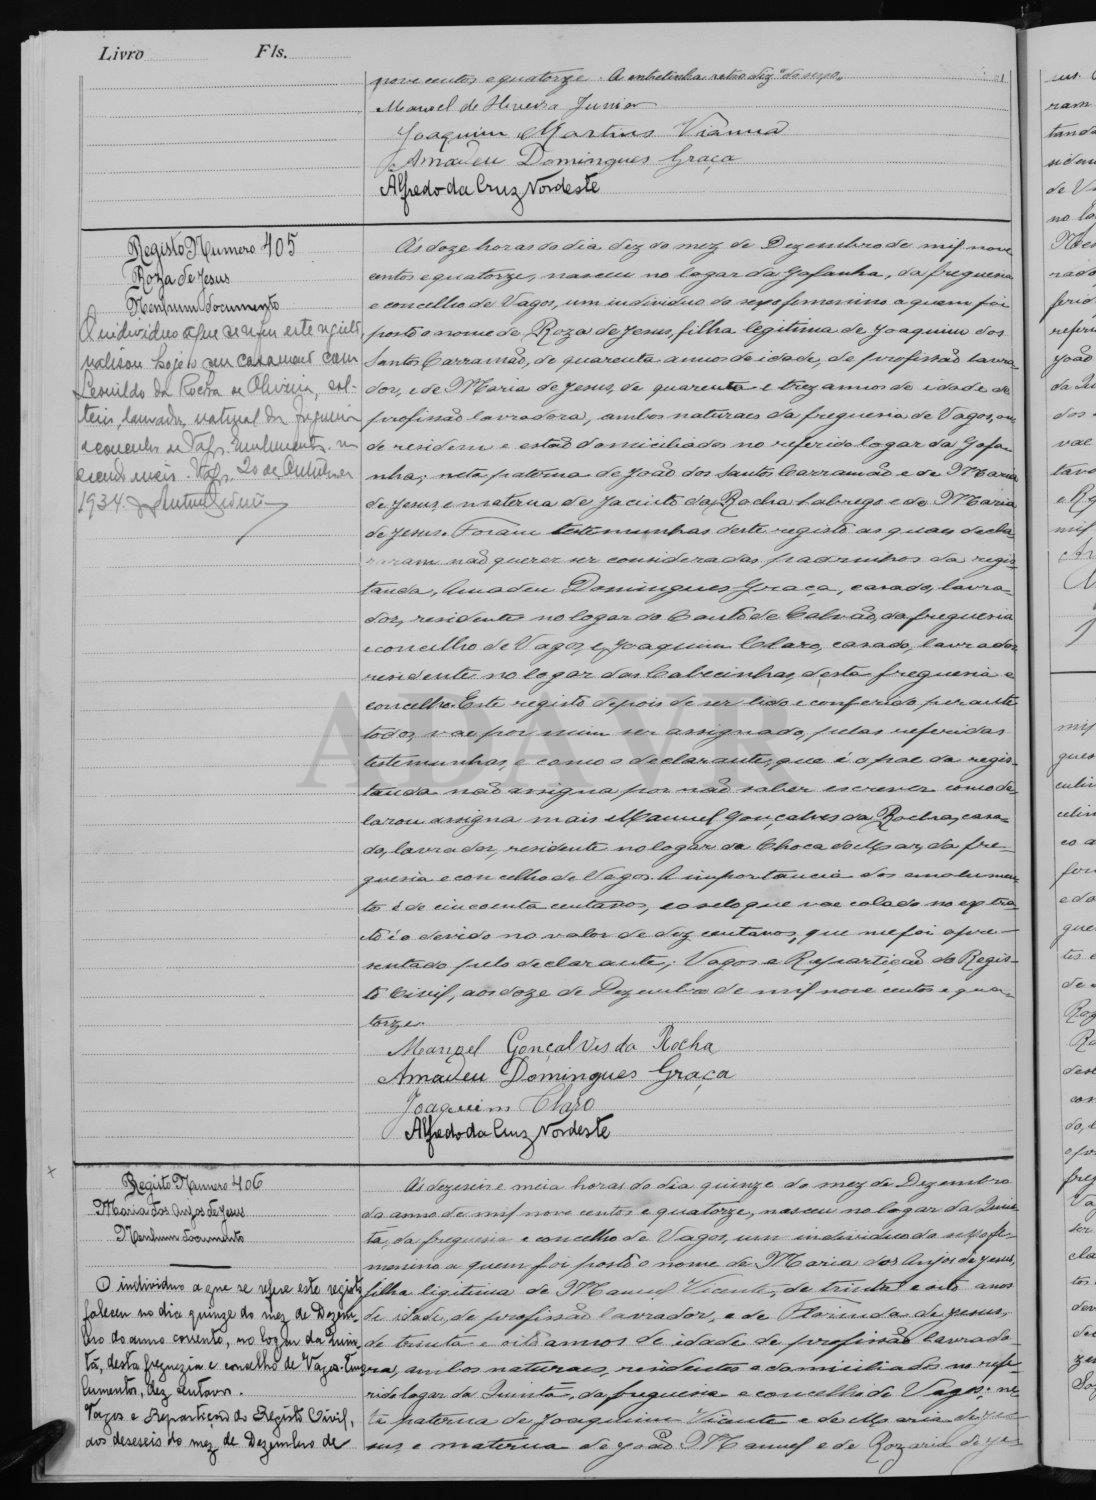 Livro Fls.
nove centos e quatorze. A entrelinha retro diz "do sexo.
Manoel de Oliveira Junior
Joaquim Martins Vianna
Amadeu Domingues Graça
Alfredo da Cruz Nordeste
Registo Numero 405
Roza de Jesus
Nenhum documento
O individuo a que se refere este registo
realisou hoje o seu casamento com
Leonildo da Rocha de Oliveira, sol-
teiro, lavrador, natural da freguesia
e concelho de Vagos. Emolumentos
Vagos, 20 de Outubro
1934.
Ás doze horas do dia dez do mez de Dezembro de mil nove
centos e quatorze, nasceu no logar da Gafanha, da freguesia
e concelho de Vagos, um individuo do sexo femenino a quem foi
posto o nome de Roza de Jesus, filha legitima de Joaquim dos
Santos Carramão, de quarenta annos de idade, de profissão lavra-
dor, e de Maria de Jesus, de quarenta e trez annos de idade de
profissão lavradora, ambos naturaes da freguesia de Vagos, on-
de residem e estão domiciliados no referido logar da Gafa-
nha; neta paterna de João dos Santos Carramão e de Maria
de Jesus e materna de Jacinto da Rocha Labrego e de Maria
de Jesus. Foram testemunhas deste registo as quaes decla-
raram não querer ser consideradas padrinhos da regis-
tanda, Amadeu Domingues Graça, casado, lavra-
dor, residente no logar do Canto de Calvão, da freguesia
e concelho de Vagos, e Joaquim Claro, casado, lavrador
residente no logar das Cabecinhas, desta freguesia e
concelho. Este registo depois de ser lido e conferido perante
todos, vae por mim ser assignado, pelas referidas
testemunhas, e como o declarante, que é o pae da regis-
tanda não assigna por não saber escrever como de-
larou assigna mais Manuel Gonçalves da Rocha, casa-
do, lavrador, residente no logar da Choca do Mar, da fre-
guesia e concelho de Vagos. A importancia dos emolumen-
tos é de cincoenta centavos, e o selo que vae colado no extra-
cto é o devido no valor de dez centavos, que me foi apre-
sentado pelo declarante; Vagos e Repartição do Regis-
to Civil, aos doze de Dezembro de mil nove centos e qua-
torze.
Manoel Gonçalves da Rocha
Amadeu Domingues Graça
Joaquim Claro
Alfredo da Cruz Nordeste
ADAVR
Registo Numero 406
Maria dos Anjos de Jesus
Nenhum documento
O individuo a que se refere este registo
faleceu no dia quinze do mez de Dezem-
bro do anno corrente, no logar da Quin-
tã, desta freguezia e concelho de Vagos. Emo-
lumentos, dez centavos.
Vagos e Repartição do Registo Civil,
aos deseseis do mez de Dezembro de
Ás dezeseis e meia horas do dia quinze do mez de Dezembro
do anno de mil nove centos e quatorze, nasceu no logar da Quin-
tã, da freguesia e concelho de Vagos, um individuo do sexo fe-
menino a quem foi posto o nome de Maria dos Anjos de Jesus,
filha legitima de Manuel Vicente, de trinta e oito anos
de idade, de profissão lavrador, e de Florinda de Jesus,
de trinta e oito annos de idade de profissão lavrado-
ra, ambos naturaes, residentes e domiciliados no refe-
rido logar da Quintã, da freguesia e concelho de Vagos; ne-
ta paterna de Joaquim Vicente e de Maria de Je-
sus, e materna de João Manuel e de Rozaria de Je-